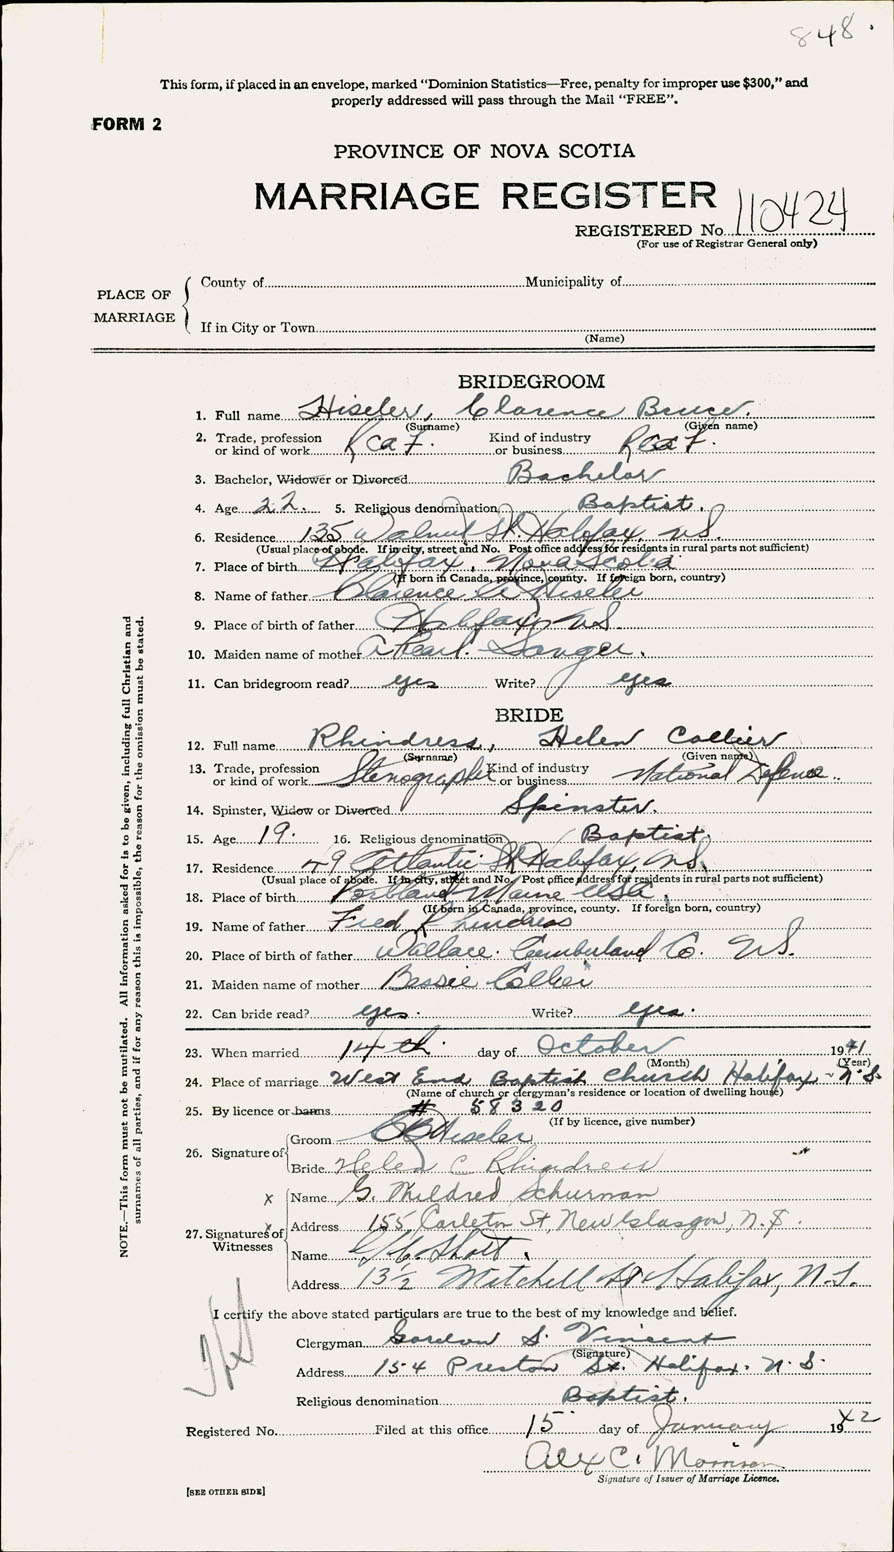 848.
This form, if placed in an envelope, marked "Dominion Statistics—Free, penalty for improper use $300," and
properly addressed will pass through the Mail "FREE".
FORM 2
PROVINCE OF NOVA SCOTIA
MARRIAGE REGISTER
REGISTERED No. 110424
(For use of Registrar General only)
PLACE OF MARRIAGE
County of Municipality of
If in City or Town
(Name)
BRIDEGROOM
1. Full name Hiseler, Clarence Bruce.
(Surname) (Given name)
2. Trade, profession or kind of work RCAF. Kind of industry or business RCAF.
3. Bachelor, Widower or Divorced Bachelor
4. Age 22. 5. Religious denomination Baptist.
6. Residence 135 Walnut St. Halifax, N.S.
(Usual place of abode. If in city, street and No. Post office address for residents in rural parts not sufficient)
7. Place of birth Halifax, Nova Scotia
(If born in Canada, province, county. If foreign born, country)
8. Name of father Clarence Hiseler
9. Place of birth of father Halifax, N.S.
10. Maiden name of mother A Pearl. Sanger.
11. Can bridegroom read? yes Write? yes
BRIDE
12. Full name Rhindress, Helen Collier
(Surname) (Given name)
13. Trade, profession or kind of work Stenographer Kind of industry or business National Defence.
14. Spinster, Widow or Divorced Spinster.
15. Age 19. 16. Religious denomination Baptist.
17. Residence 49 Atlantic St Halifax, N.S.
(Usual place of abode. If in city, street and No. Post office address for residents in rural parts not sufficient)
18. Place of birth Portland Maine USA.
(If born in Canada, province, county. If foreign born, country)
19. Name of father Fred Rhindress
20. Place of birth of father Wallace. Cumberland Co. N.S.
21. Maiden name of mother Bessie Collier
22. Can bride read? yes. Write? yes.
23. When married 14th day of October 1941
(Month) (Year)
24. Place of marriage West End Baptist Church Halifax - N.S.
(Name of church or clergyman's residence or location of dwelling house)
25. By licence or banns # 58320
(If by licence, give number)
26. Signature of Groom CB Hiseler
Bride Helen C Rhindress
27. Signatures of Witnesses
x Name G. Mildred Schurman
Address 155, Carleton St, New Glasgow, N.S.
Name Shott.
Address 13½ Mitchell St Halifax, N.S.
I certify the above stated particulars are true to the best of my knowledge and belief.
Clergyman Gordon S. Vincent
(Signature)
Address 154 Preston St. Halifax. N.S.
Religious denomination Baptist.
Registered No. Filed at this office 15 day of January 1942
Alex C. Morrison
Signature of Issuer of Marriage Licence.
[SEE OTHER SIDE]
NOTE.—This form must not be mutilated. All information asked for is to be given, including full Christian and
surnames of all parties, and if for any reason this is impossible, the reason for the omission must be stated.